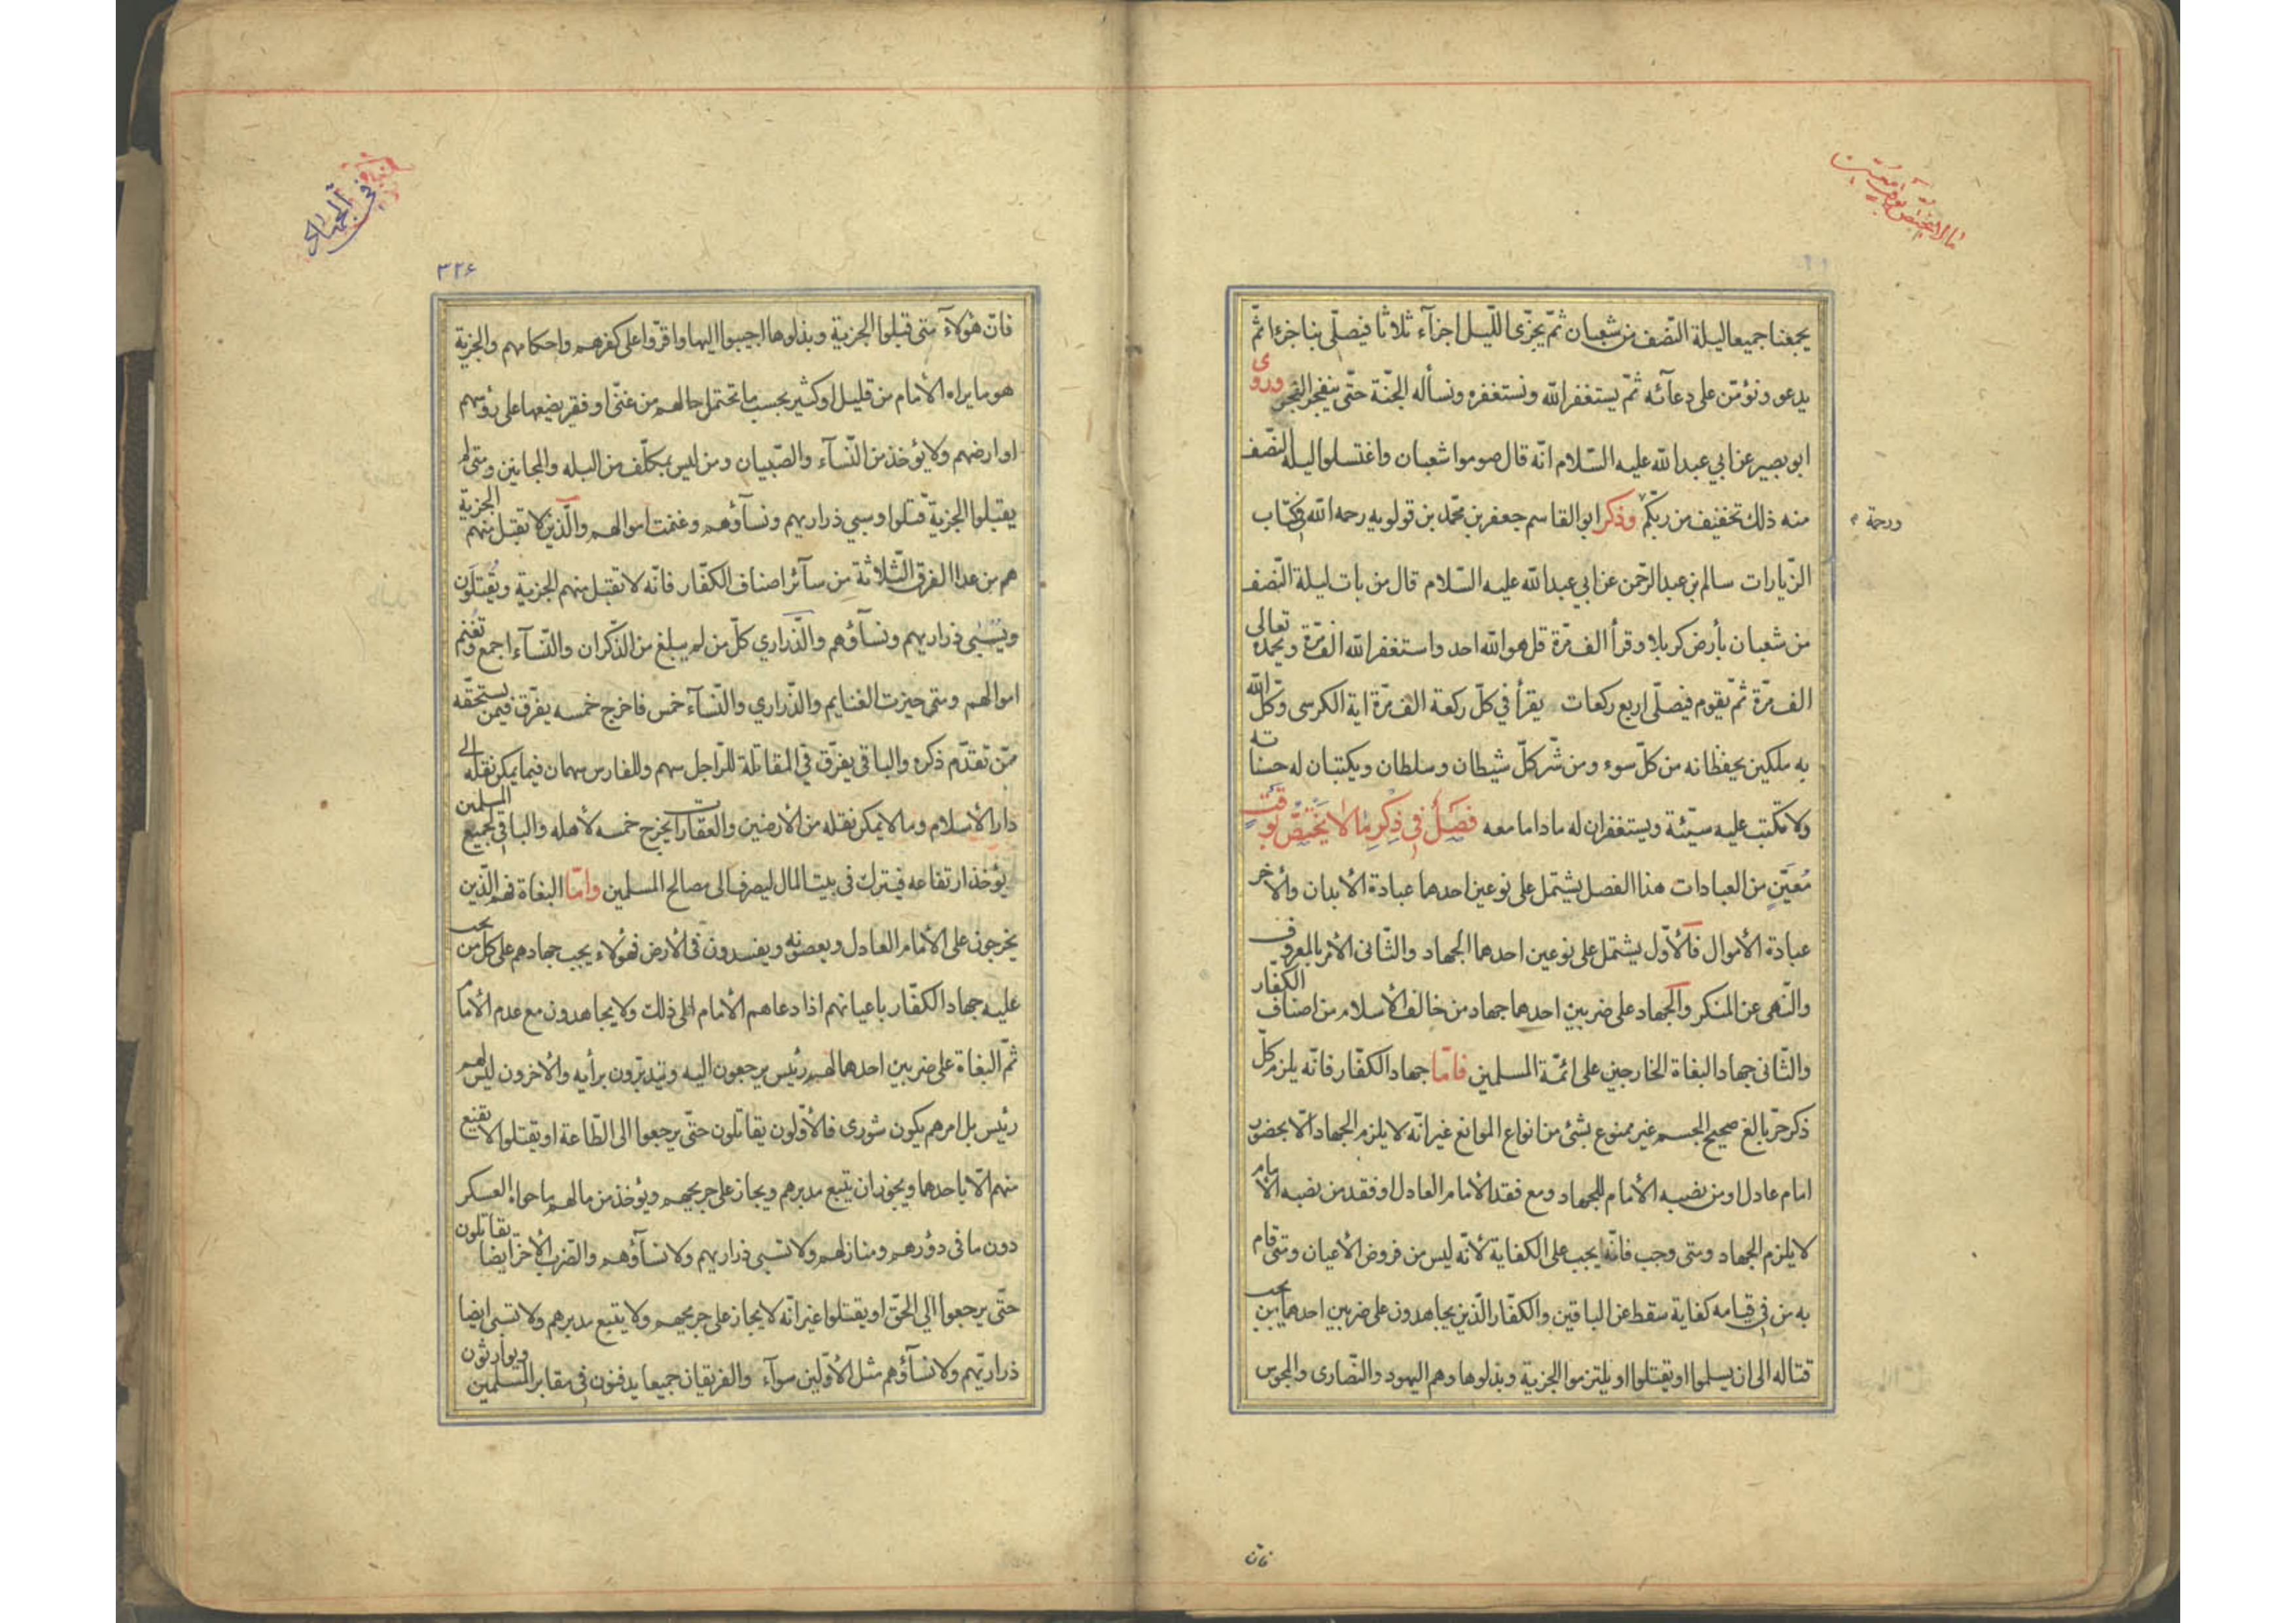 يجمعنا جميعا ليلة النّصف من شعبان ثمّ يجزّى اللّيل اجزآء ثلاثا فيصلّى بنا جزءا ثمّ
يدعو ونؤمّن على دعآئه ثمّ يستغفر الله ونستغفره ونسأله الجنّة حتّى ينفجر الفجر وروى
ابو بصير عن ابي عبد الله عليه السّلام انّه قال صوموا شعبان واغتسلوا ليلة النّصف
منه ذلك تخفيف من ربّكم وذكر ابو القاسم جعفر بن محمّد بن قولويه رحمه الله في كتاب
ورحمة
الزّيارات سالم بن عبد الرّحمن عن ابي عبد الله عليه السّلام قال من بات ليلة النّصف
من شعبان بأرض كربلا وقرأ الف مرّة قل هو الله احد واستغفر الله الف مرّة ويحمد تعالى
الف مرّة ثمّ يقوم فيصلّى اربع ركعات يقرأ في كلّ ركعة الف مرّة اية الكرسى وكّل الله
به ملكين يحفظانه من كلّ سوء ومن شرّ كلّ شيطان وسلطان ويكتبان له حسناته
ولا تكتب عليه سيّئة ويستغفران له ما داما معه فصل في ذكر ما لا يختصّ بوقت
مُعيّن من العبادات هذا الفصل يشتمل على نوعين احدهما عبادة الأبدان والأخر
عبادة الأموال فالأوّل يشتمل على نوعين احدهما الجهاد والثّانى الأمر بالمعروف
والنّهى عن المنكر والجهاد على ضربين احدهما جهاد من خالف الأسلام من اصناف الكفّار
والثّانى جهاد البغاة الخارجين على ائمّة المسلمين فامّا جهاد الكفّار فانّه يلزم كلّ
ذكر حرّ بالغ صحيح الجسم غير ممنوع بشئ من انواع الموانع غير انّه لا يلزم الجهاد الّا بحضور
امام عادل او من نصبه الأمام للجهاد ومع فقد الأمام العادل او فقد من نصبه الأمام
لا يلزم الجهاد ومتى وجب فانّه يجب على الكفاية لأنّه ليس من فروض الأعيان ومتى قام
به من في قيامه كفاية سقط عن الباقين والكفّار الّذين يجاهدون على ضربين احدهما يجب
قتاله الى ان يسلموا او يقتلوا او يلتزموا الجزية وبذلوها وهم اليهود والنّصارى والمجوس
فانّ
في الجهاد
٣٢۶
فانّ هؤلآء متى قبلوا الجزية وبذلوها اجيبوا اليها واقرّوا على كفرهم واحكامهم والجزية
هو ما يراه الأمام من قليل او كثير بحسب ما تحتمل حالهم من غنّى او فقر يضعها على رؤسهم
او ارضهم ولا يؤخذ من النّسآء والصّبيان ومن ليس بمكلّف من البله والمجانين ومتى لم
يقبلوا الجزية قتلوا وسبي ذراريهم ونسآؤهم وغنمت اموالهم والّذين لا تقبل منهم الجزية
هم من عدا الفرق الثّلاثة من سآئر اصناف الكفّار فانّه لا تقبل منهم الجزية ويقتلون
ويسبى ذراريهم ونسآؤهم والذّراري كلّ من لم يبلغ من الذّكران والنّسآء اجمع وتغنم
اموالهم ومتى حيزت الغنايم والذّراري والنّسآء خمس فاخرج خمسه يفرّق فيمن يستحقّه
ممّن تقدّم ذكره والباقى يفرّق في المقاتلة للرّاجل سهم وللفارس سهمان فيما يمكن نقله الى
دار الأسلام وما لا يمكن نقله من الأرضين والعقارات يخرج خمسه لأهله والباقى لجميع المسلمين
يؤخذ ارتفاعه فيترك فى بيت المال ليصرف الى مصالح المسلمين وامّا البغاة فهم الّذين
يخرجون على الأمام العادل ويعصونه ويفسدون فى الأرض فهؤلاء يجب جهادهم على كل من يجب
عليه جهاد الكفّار باعيانهم اذا دعاهم الأمام الى ذلك ولا يجاهدون مع عدم الأمام
ثمّ البغاة على ضربين احدهما لهم رئيس يرجعون اليه ويتدبّرون برأيه والأخرون ليس لهم
رئيس بل امرهم يكون شورى فالأوّلون يقاتلون حتّى يرجعوا الى الطّاعة او يقتلوا لا تقنع
منهم الّا باحدهما ويجوز ان يتبع مدبرهم ويجاز على جريحهم ويؤخذ من مالهم ما حواه العسكر
دون ما فى دؤرهم ومنازلهم ولا تسبى ذراريهم ولا نسآؤهم والضّرب الأخر ايضا يقاتلون
حتّى يرجعوا الى الحقّ او يقتلوا غير انّه لا يجاز على جريحهم ولا يتبع مدبرهم ولا تسبى ايضا
ذراريّهم ولا نسآؤهم مثل الأوّلين سوآء والفريقان جميعا يدفنون في مقابر المسلمين ويوارثون